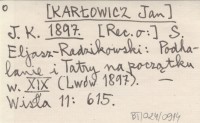 [KARŁOWICZ Jan]
J. K. 1897. [Rec. o:] S.
Eljasz-Radzikowski: Podha-
lanie i Tatry na początku
w. XIX (Lwów 1897). —
Wisła 11: 615.
BT/024/0914